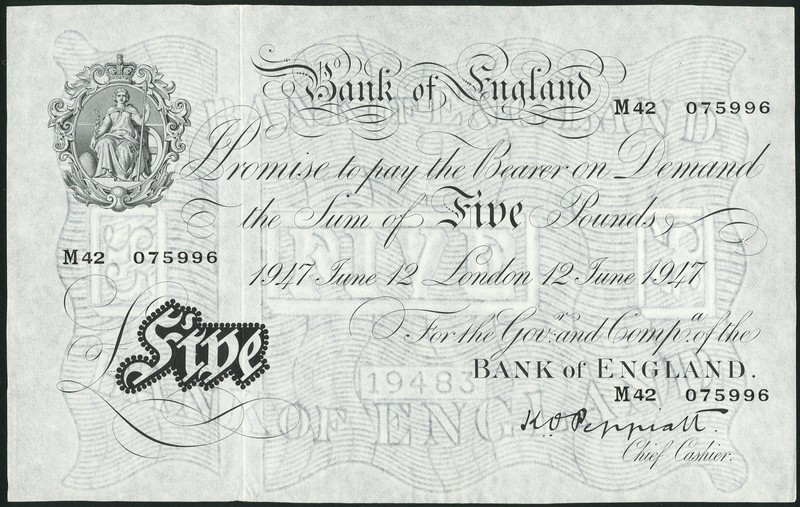 Bank of England
M42 075996
I Promise to pay the Bearer on Demand
the Sum of Five Pounds
M42 075996
1947 June 12 London 12 June 1947
For the Gov.r and Comp.a of the
BANK of ENGLAND.
£Five
M42 075996
K O Peppiatt.
Chief Cashier.
BANK OF ENGLAND
FIVE
19483
BANK OF ENGLAND